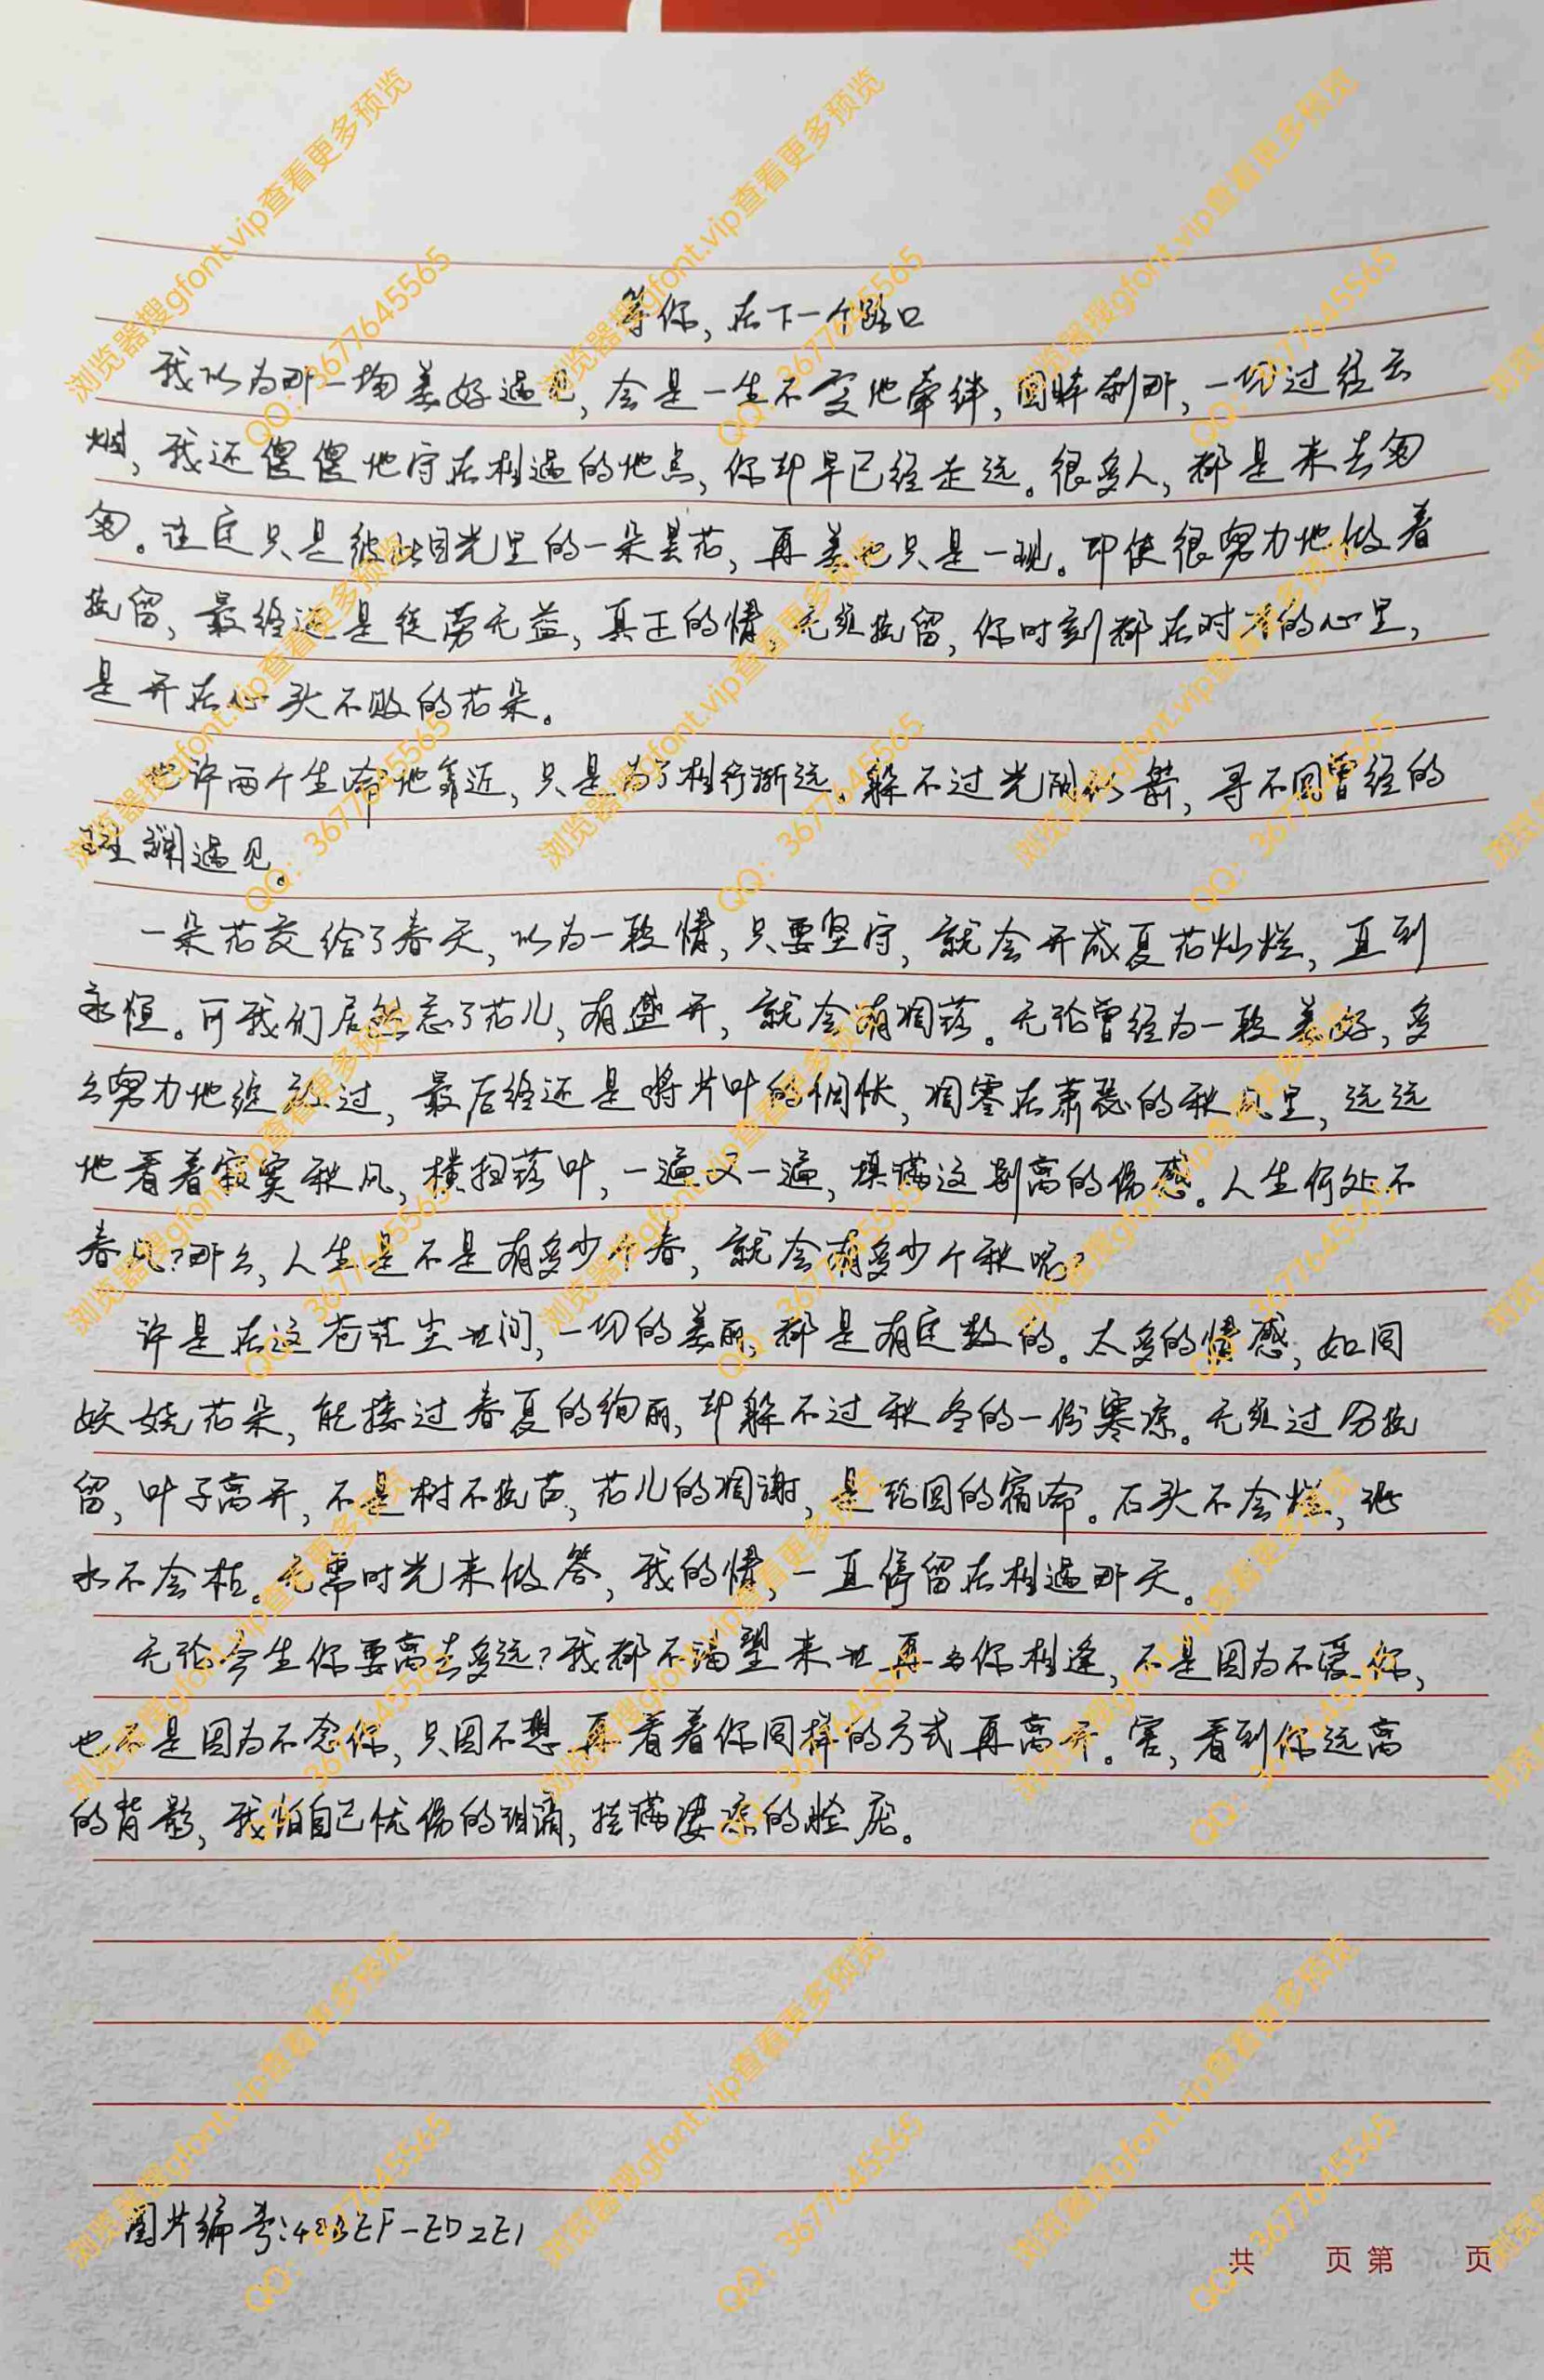 等你，在下一个路口
我以为那一场美好遇见，会是一生不变地牵绊，回眸刹那，一切过往云
烟，我还傻傻地守在相遇的地点，你却早已经走远。很多人，都是来去匆
匆。注定只是彼此目光里的一朵昙花，再美也只是一现。即使很努力地做着
挽留，最终还是徒劳无益，真正的情，无须挽留，你时刻都在对方的心里，
是开在心头不败的花朵。
也许两个生命地靠近，只是为了相行渐远。躲不过光阴似箭，寻不回曾经的
斑斓遇见。
一朵花交给了春天，以为一段情，只要坚守，就会开成夏花灿烂，直到
永恒。可我们居然忘了花儿，有盛开，就会有凋落。无论曾经为一段美好，多
么努力地绽放过，最后终还是将片叶的惆怅，凋零在萧瑟的秋风里，远远
地看着寂寞秋风，横扫落叶，一遍又一遍，填满这割离的伤感。人生何处不
春风？那么，人生是不是有多少个春，就会有多少个秋呢？
许是在这苍茫尘世间，一切的美丽，都是有定数的。太多的情感，如同
妖娆花朵，能接过春夏的绚丽，却躲不过秋冬的一份寒凉。无须过分挽
留，叶子离开，不是树不挽留，花儿的凋谢，是轮回的宿命。石头不会烂，海
水不会枯。无需时光来做答，我的情，一直停留在相遇那天。
无论今生你要离去多远？我都不渴望来世再与你相逢，不是因为不爱你，
也不是因为不念你，只因不想再看着你同样的方式再离开。害，看到你远离
的背影，我怕自己忧伤的泪滴，挂满凄凉的脸庞。
图片编号：4 EF-ED2E1
共 页 第 页
浏览器搜gfont.vip查看更多预览
QQ：3677645565